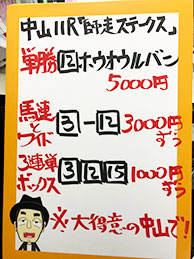 中山11R「師走ステークス」
単勝 12 ホウオウルバン
5000円
馬連とワイド 3-12 3000円ずつ
3連単ボックス 3 12 15 1000円ずつ
※大得意の中山で!